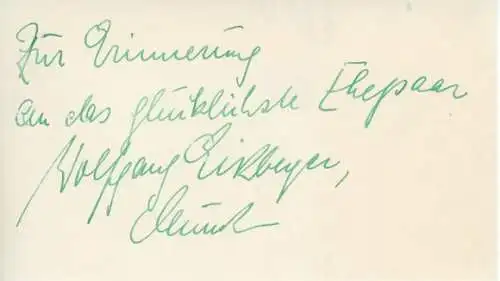 Zur Erinnerung
an das glücklichste Ehepaar
Wolfgang Eikberger,